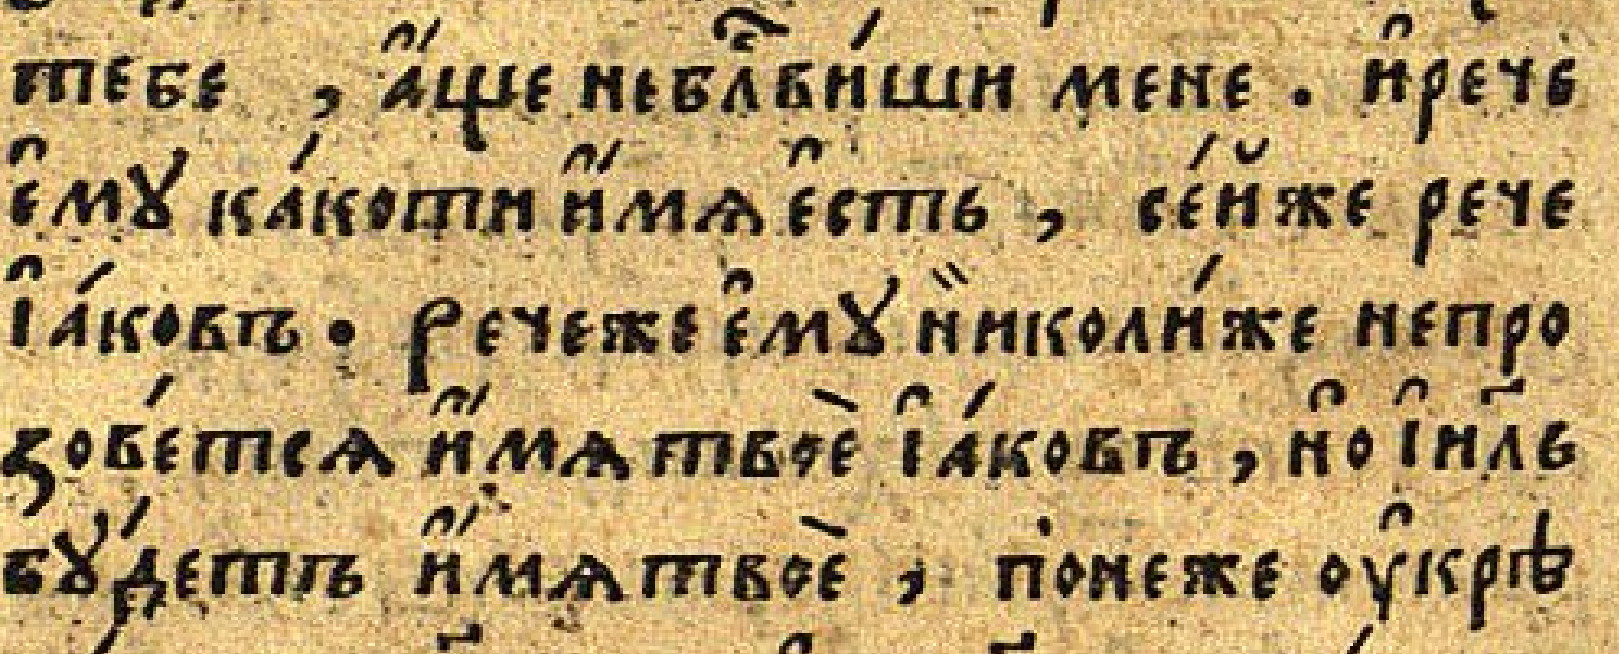 тебе , а҆́ще небл҃ви́ши мене . и҆рече
е҆мꙋ ка́коти и҆́мѧ е҆сть , се́йже рече
І҆а́ковъ . Речеже е҆мꙋ н̏иколи́же непро
зове́тсѧ и҆́мѧ твоѐ І҆а́ковъ , н҆о І҆и҆л҃ь
бꙋ́детъ и҆́мѧ твоѐ , понеже ᲂу҆крѣ